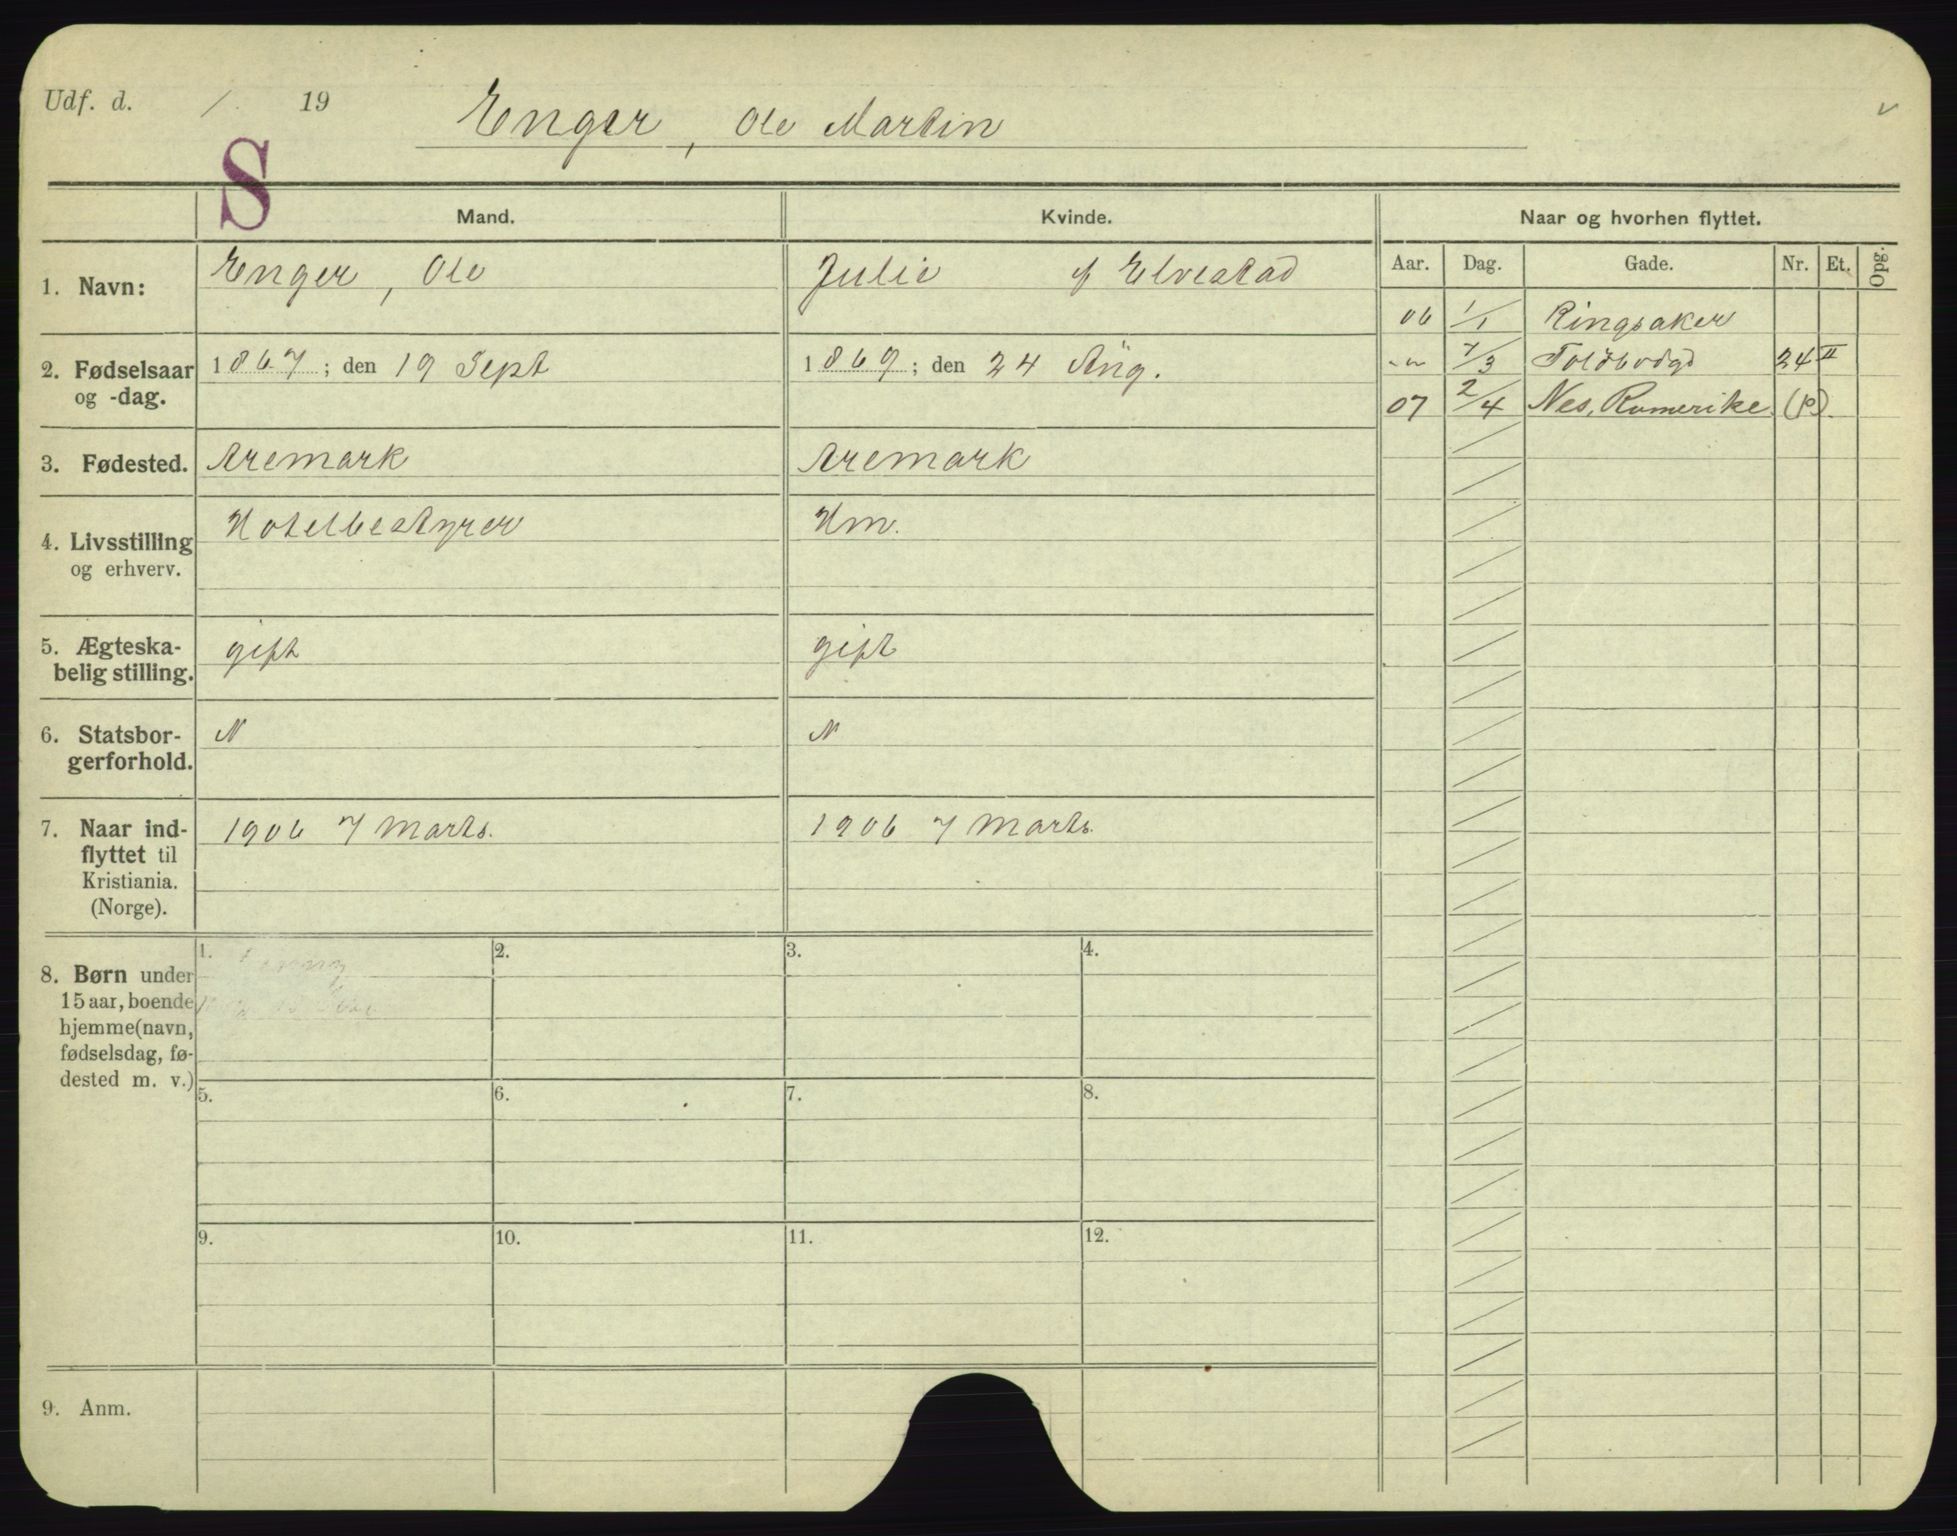 Udf. d. / 19 Enger, Ole Martin v
S
Mand. Kvinde. Naar og hvorhen flyttet.
Aar. Dag. Gade. Nr. Et. Opg.
1. Navn: Enger, Ole Julie f Elvestad
06 1/1 Ringsaker
-"- 7/3 Toldbodgd 24 II
07 2/4 Nes, Romerike. (p).
2. Fødselsaar og -dag. 1867; den 19 Sept 1869; den 24 Aug.
3. Fødested. Aremark Aremark
4. Livsstilling og erhverv. Hotelbestyrer Hm.
5. Ægteska-
belig stilling. gift gift
6. Statsbor-
gerforhold. N N
7. Naar ind-
flyttet til
Kristiania.
(Norge). 1906 7 Marts. 1906 7 Marts.
8. Børn under
15 aar, boende
hjemme (navn,
fødselsdag, fø-
dested m. v.)
1. 2. 3. 4.
5. 6. 7. 8.
9. 10. 11. 12.
9. Anm.